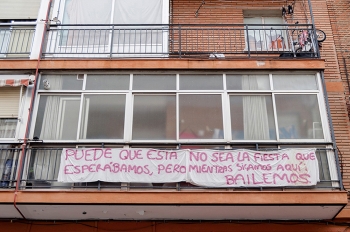 PUEDE QUE ESTA NO SEA LA FIESTA QUE
ESPERÁBAMOS, PERO MIENTRAS SIGAMOS AQUÍ
BAILEMOS